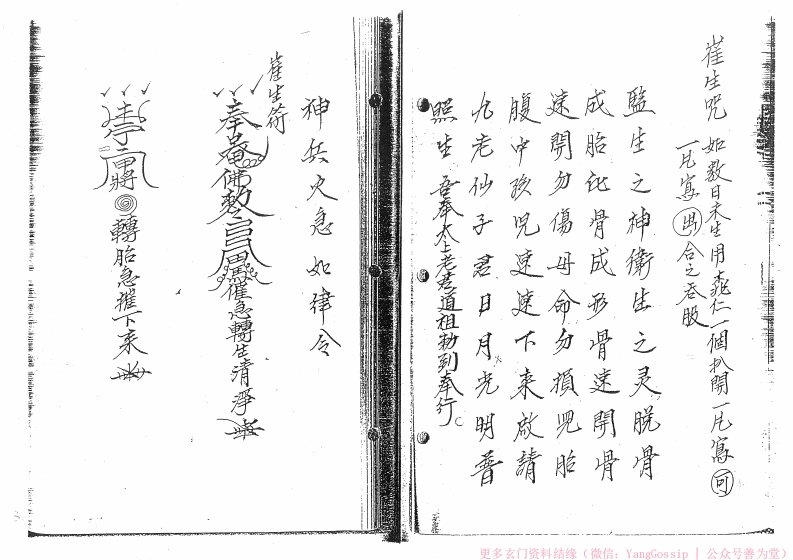 崔生咒 如數日未生用桃仁一個扒開一片寫可
一片寫出合之吞服
監生之神衛生之灵脱骨
成胎化骨成形骨速開骨
速開勿傷母命勿損兒胎
腹中孩兒速速下来啟請
九老仙子君日月光明普
照生 吾奉太上老君道祖勅到奉行
神兵火急如律令
崔生符
奉 佛敕 催急轉生清淨
轉胎急摧下来
更多玄门资料结缘（微信：YangGossip | 公众号善为堂）